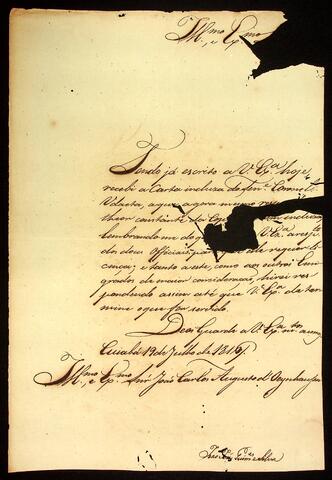 Ill.mo e Ex.mo
Tendo já escrito a V. Ex.a hoje
recebi a Carta incluza do Ten.e Coronel
Udaeta, a que
theor constante da
Lembrando me do q V. Ex.a a resp.to
do dous Officiaes que requer li-
cença; e tanto a este, como ao outros Emi-
grados de maior consideração, hirei res-
pondendo assim até que V. Ex.a deter-
mine o que for servido.
Deos Guarde a V. Ex.a m.tos annos
Cuiabá 19 de Julho de
Ill.mo e Ex.mo Snr João Carlos Augusto d'Oeynhausen